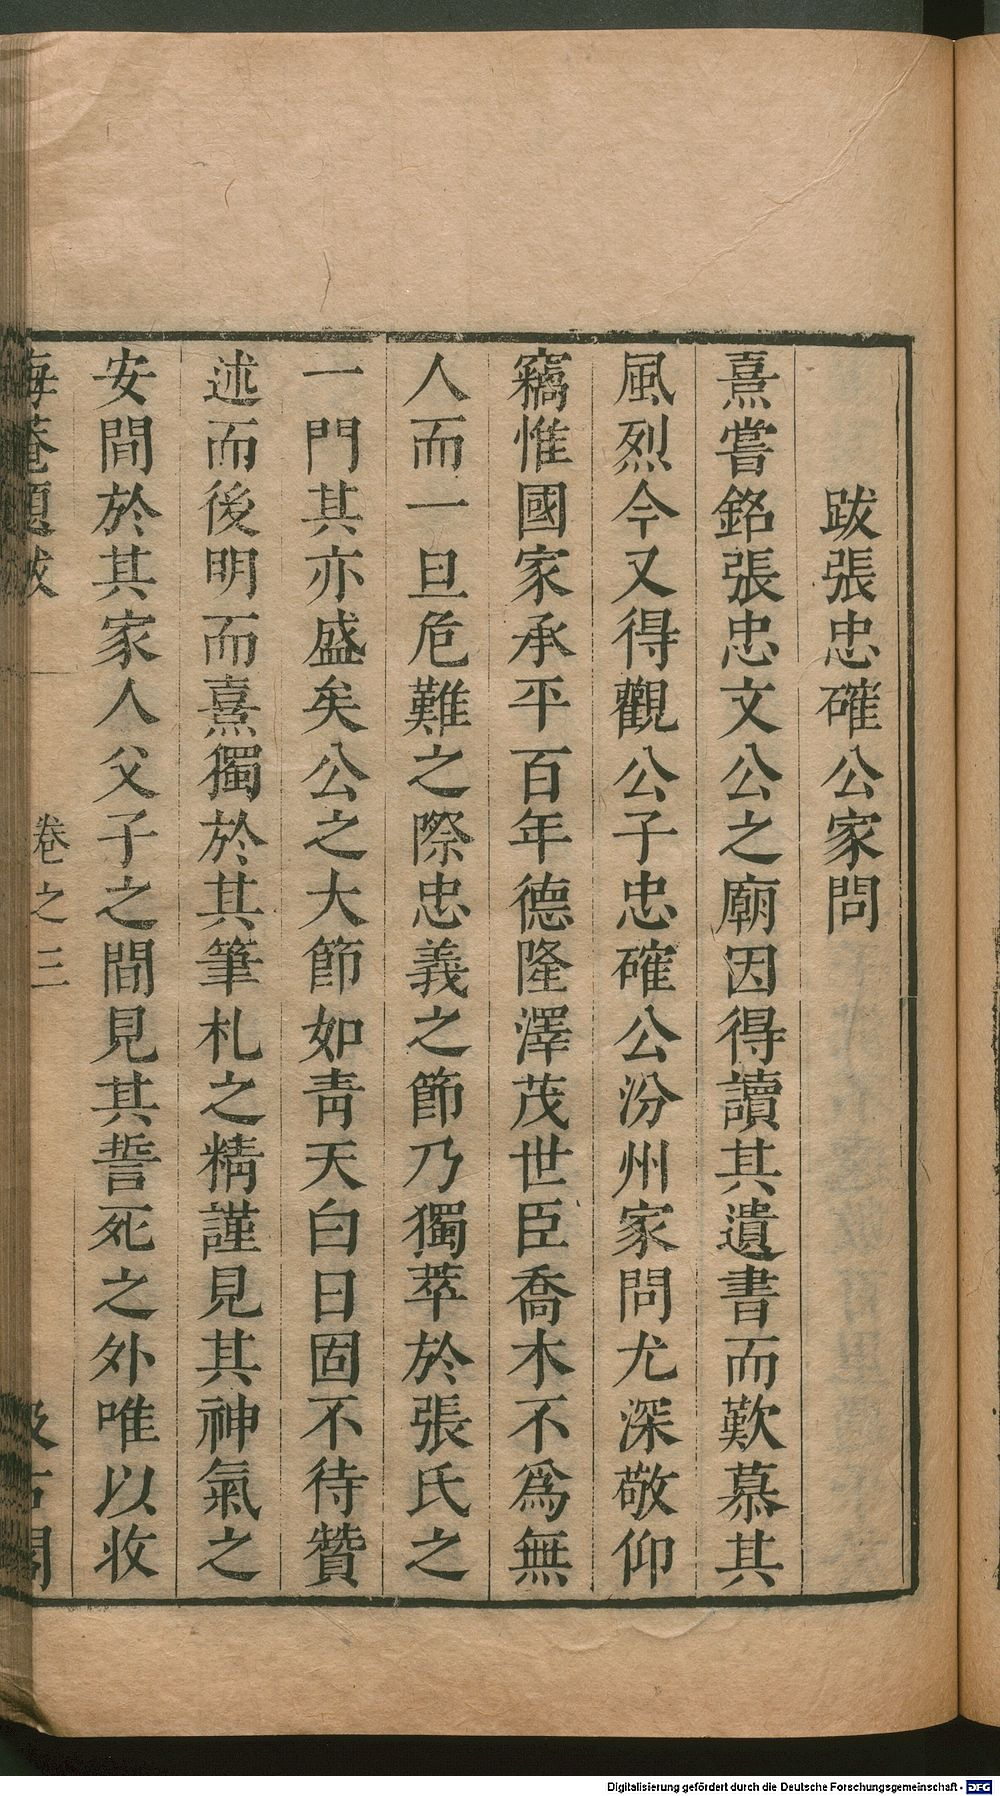 跋張忠確公家問
熹嘗銘張忠文公之廟因得讀其遺書而歎慕其
風烈今又得觀公子忠確公汾州家問尤深敬仰
竊惟國家承平百年德隆澤茂世臣喬木不爲無
人而一旦危難之際忠義之節乃獨萃於張氏之
一門其亦盛矣公之大節如靑天白日固不待贊
述而後明而熹獨於其筆札之精謹見其神氣之
安間於其家人父子之間見其誓死之外唯以收
海菴題跋 卷之三 汲古閣
Digitalisierung gefördert durch die Deutsche Forschungsgemeinschaft - DFG